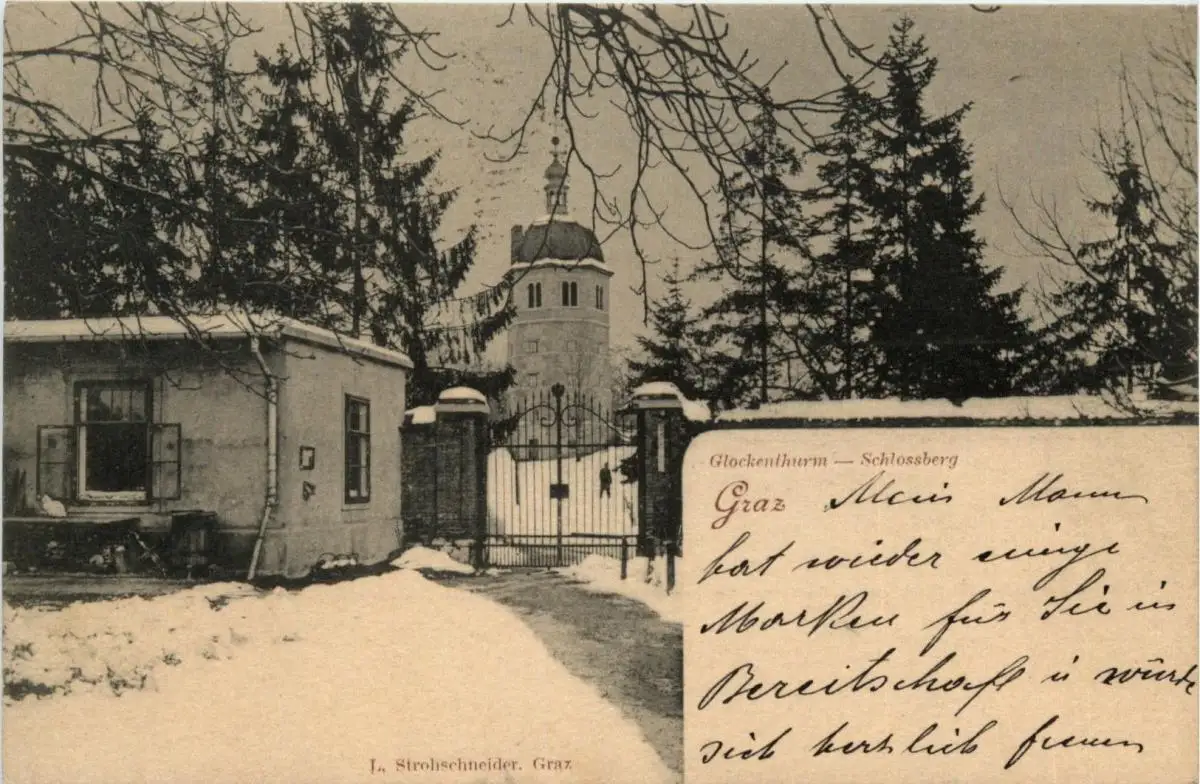 Glockenthurm — Schlossberg
Graz Mein Mann
hat wieder einige
Marken für Sie in
Bereitschaft u würde
sich herzlich freuen
L. Strohschneider. Graz